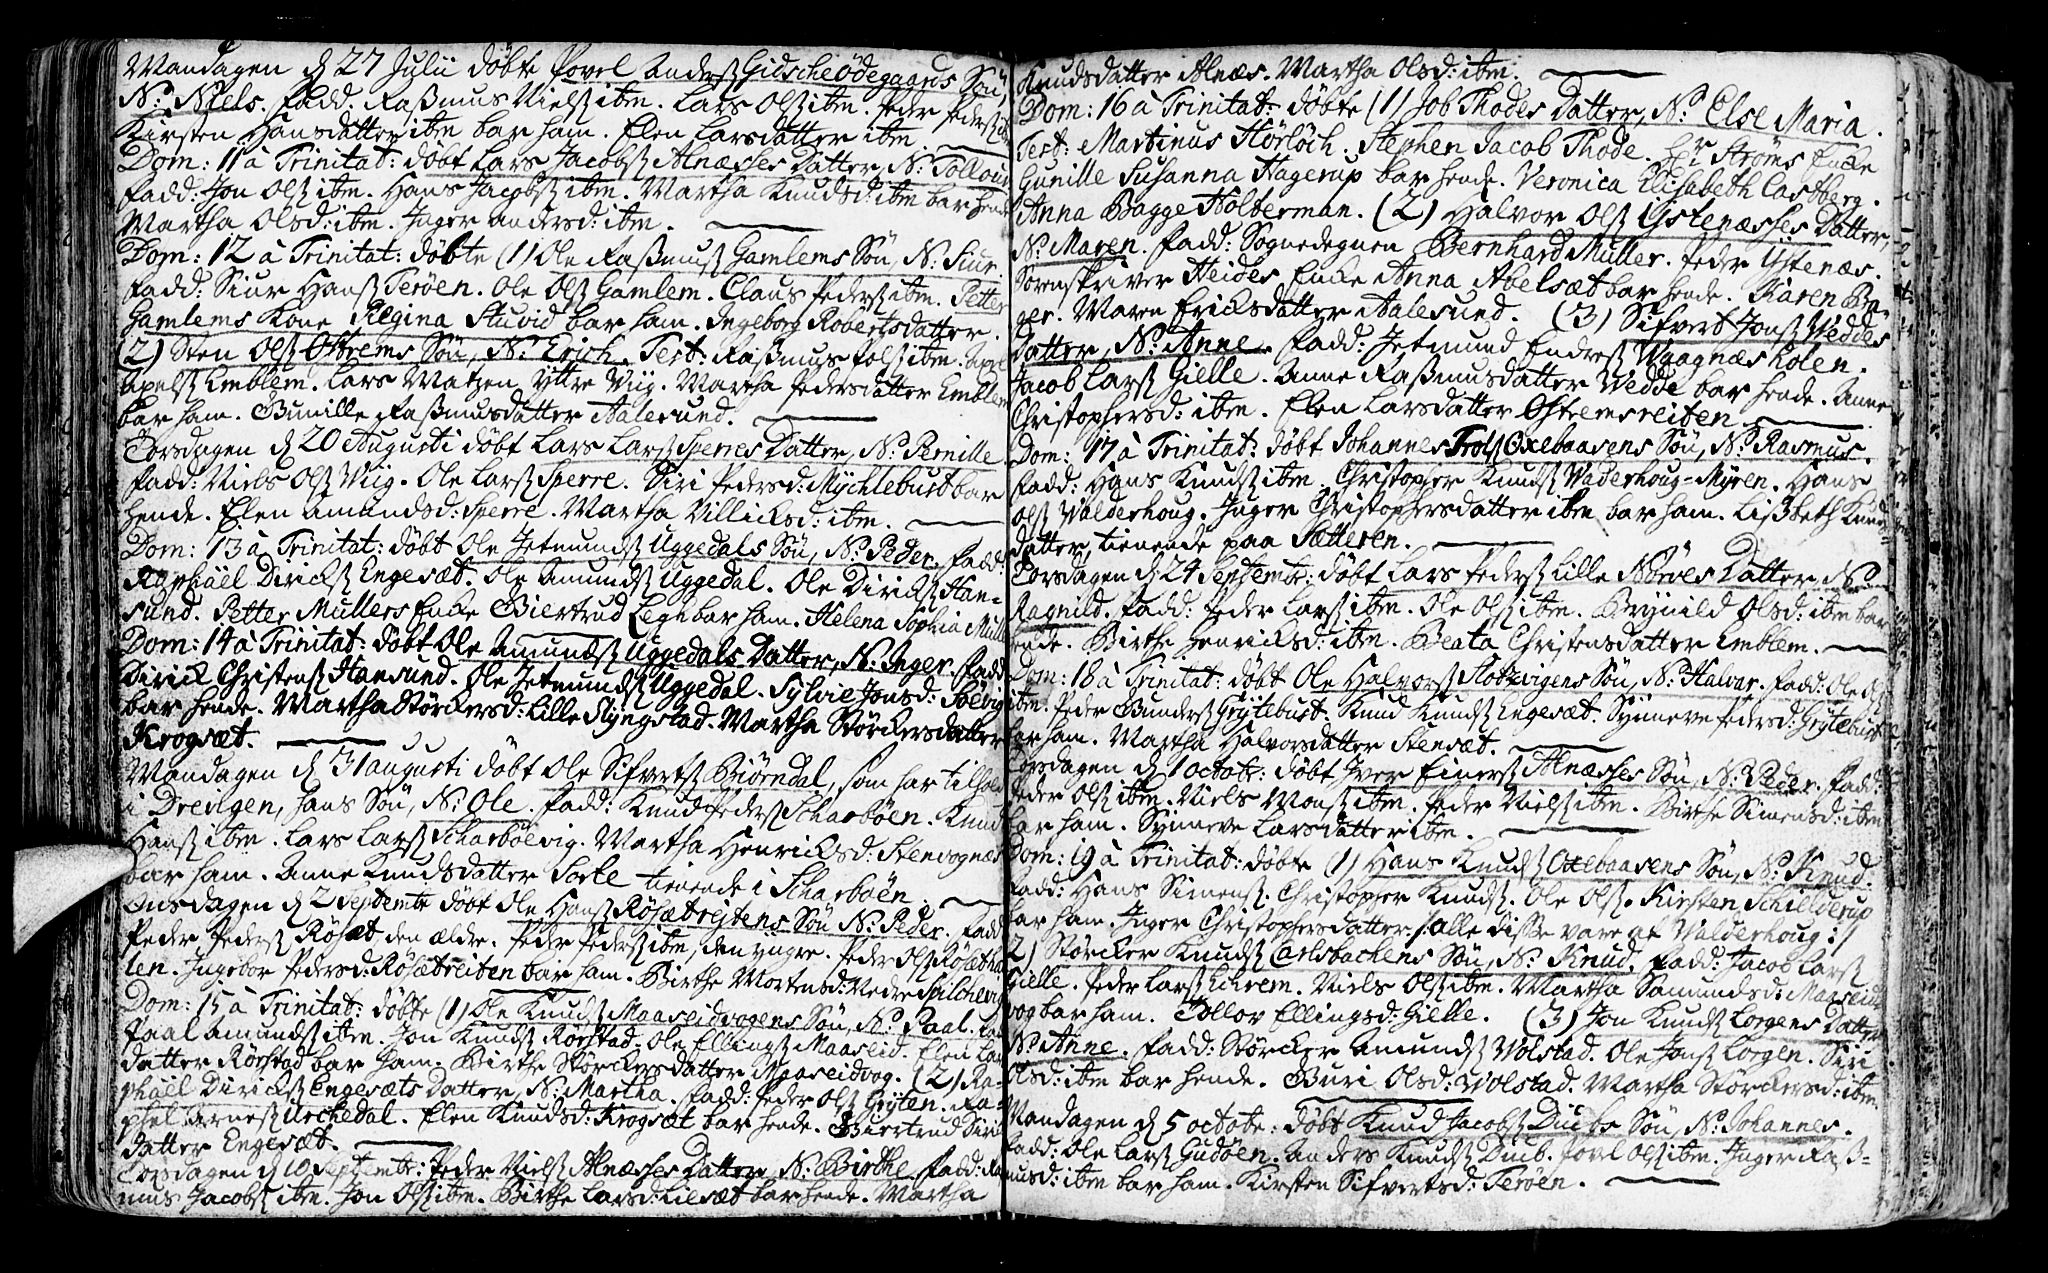 Mandagen d 27 Julii döbt Povel Anders Gidscheödegaards Sön,
N: Niels. Fadd. Rasmus Niels: ibm. Lars Ols: ibm. Peder Peders: ibm
Kirsten Hansdatter ibm bar ham. Elen Larsdatter ibm.
Dom: 11 à Trinitat: döbt Lars Jacobs: Alnæsses Datter, N: Tollou
Fadd: Jon Ols: ibm. Hans Jacobs: ibm. Martha Knudsd: ibm bar hende
Martha Olsd: ibm. Inger Andersd: ibm.
Dom: 12 à Trinitat: döbte (1) Ole Rasmus: Gamlems Sön, N: Siur.
Fadd: Siur Hans: Teröen. Ole Ols: Gamlem. Claus Peders: ibm. Petter
Gamlems Kone Regina Stuvid bar ham. Ingeborg Robertsdatter.
(2) Sten Ols: Ostrems Sön, N: Erich. Test: Rasmus Pols: ibm. Axel
Axels: Emblem. Lars Matzen Yttre Viig. Martha Pedersdatter Emblem
bar ham. Gunille Rasmusdatter Aalesund.
Torsdagen d 20 Augusti döbt Lars Lars: Sperres Datter, N: Pernille
Fadd: Niels Ols: Viig. Ole Lars: Sperre. Siri Pedersd: Mychlebust bar
hende. Elen Amundsd: Sperre. Martha Villicksd: ibm.
Dom: 13 à Trinitat: döbt Ole Jetmunds: Uggedals Sön, N: Peder. Fadd:
Raphäel Diricks: Engesæt. Ole Amunds: Uggedal. Ole Diricks: Han-
sund. Petter Mullers Enke Giertrud Legn bar ham. Helena Sophia Mulle
Dom: 14 à Trinitat: döbt Ole Amunds: Uggedals Datter, N: Inger. Fadd
Dirick Christens: Hansund. Ole Jetmunds: Uggedal. Sylvie Jonsd: Solvig
bar hende. Martha Störckersd: Lille Slyngstad. Martha Störckersdatter
Krogsæt.
Mandagen d 31 augusti döbt Ole Sifverts: Biörndal, som har tilhold
i Dreilgen, hans Sön, N: Ole. Fadd: Knud Peders: Scharböen. Knud
Hans: ibm. Lars Lars: Scharböevig. Martha Henricksd: Stenvognæs
bar ham. Anne Knudsdatter Sorte tienende i Scharböen.
Onsdagen d 2 Septembr döbt Ole Hans: Rösætreitens Sön N: Peder. Fadd
Peder Peders: Rösæt, den ældre. Peder Peders: ibm, den yngre. Peder Ols: Rösætrei
ten. Ingebor Pedersd: Rösætreiten bar ham. Birthe Mortensd: Nedre Spilchevig
Dom: 15 à Trinitat: döbte (1) Ole Knuds: Maaseidvogens Sön, N: Paal. Fadd
Paal Amunds: ibm. Jon Knuds: Rörstad. Ole Ellings: Maaseid. Elen Lars
datter Rörstad bar ham. Birthe Störckersdatter Maaseidvog. (2) Ra-
phäel Diricks: Engesæts Datter, N: Martha. Fadd: Peder Ols: Gryten. Ra-
phel Arnes: Urckedal. Elen Knudsd: Krogsæt bar hende. Giertrud Siri
datter Engesæt.
Torsdagen d 10 Septembr: Peder Niels: Alnæsses Datter, N: Birthe. Fadd: Ras
mus Jacobs: ibm. Jon Ols: ibm. Birthe Larsd: Liesæt bar hende. Martha
Knudsdatter Alnæs. Martha Olsd: ibm.
Dom: 16 à Trinitat: döbte (1) Job Thodes Datter, N: Else Maria.
Test: Martinus Hörlöch. Stephen Jacob Thode. Hr Ströms Enke
Gunille Susanna Hagerup bar hende. Veronica Elisabeth Castberg.
Anna Bagge Holberman. (2) Halvor Ols: Ystenæsses Datter,
N: Maren. Fadd: Sognedegnen Bernhard Muller. Peder Ystenæs.
Sorenskriver Heides Enke Anna Abelsæt bar hende. Karen Ba-
ger. Maren Ericksdatter Aalesund. (3) Sifvert Jons: Veddes
Datter, N: Anne. Fadd: Jetmund Endres: Waagnæs holen.
Jacob Lars: Gielle. Anne Rasmusdatter Vedde bar hende. Anne
Christophersd: ibm. Elen Larsdatter Ostremsreiten
Dom: 17 à Trinitat: döbt Johannes Trols: Oxebaasens Sön, N: Rasmus.
Fadd: Hans Knuds: ibm. Christopher Knuds: Valderhoug-Myren. Hans
Ols: Valderhoug. Inger Christophersdatter ibm bar ham. Lisbeth Knuds
datter, tienende paa Sætteren.
Torsdagen d: 24 Septembr: döbt Lars Peders: Lille Nörves Datter, N:
Ragnild. Fadd: Peder Lars: ibm. Ole Ols: ibm. Brynild Olsd: ibm bar
hende. Birthe Henricksd: ibm. Beata Christensdatter Emblem.
Dom: 18 à Trinitat: döbt Ole Halvors: Flotevigens Sön, N: Halvar. Fadd: Ole Ols:
ibm. Peder Gunders: Grytebust. Knud Knuds: Engesæt. Synneve Pedersd: Grytebust
bar ham. Martha Halvorsdatter Stensæt.
Torsdagen d 1 octobr: döbt Iver Einers: Alnæsses Sön, N: Peder. Fadd:
Peder Ols: ibm. Niels Mons: ibm. Peder Niels: ibm. Birthe Simensd: ibm
bar ham. Synneve Larsdatter ibm.
Dom: 19 à Trinitat: döbte (1) Hans Knuds: Oxebaasens Sön, N: Knud.
Fadd: Hans Simens:. Christopher Knuds:. Ole Ols:. Kirsten Schilderup
bar ham. Inger Christophersdatter. /: alle disse vare af Valderhoug :/
2) Störcker Knuds: Carlsbachens Sön, N: Knud. Fadd: Jacob Lars:
Gielle. Peder Lars: Ehrem. Niels Ols: ibm. Martha Samundsd: Maaseid
vog bar ham. Tollov Ellingsd: Gielle. (3) Jon Knuds: Lorgens Datter
N: Anne. Fadd: Störcker Amunds: Volstad. Ole Jons: Lorgen. Siri
Olsd: ibm bar hende. Guri Olsd: Volstad. Martha Störckersd: ibm.
Mandagen d 5 octobr: döbt Knud Jacobs: Duibs Sön, N: Johannes.
Fadd: Ole Lars: Gudöen. Anders Knuds: Duib. Povl Ols: ibm. Inger Ras-
musd: ibm bar ham. Kirsten Sifvertsd: Teröen.